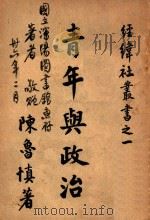 經緯社叢書之一
青年與政治
陳魯慎著
國立瀋陽圖書館惠存
著者 敬贈
卅六年二月